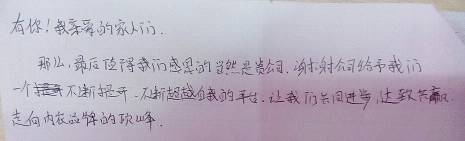 有你！我亲爱的家人们.
那么,最后值得我们感恩的当然是贵公司.谢谢公司给予我们
一个不断提升.不断超越自我的平台.让我们共同进步,达致共赢
走向内衣品牌的顶峰.